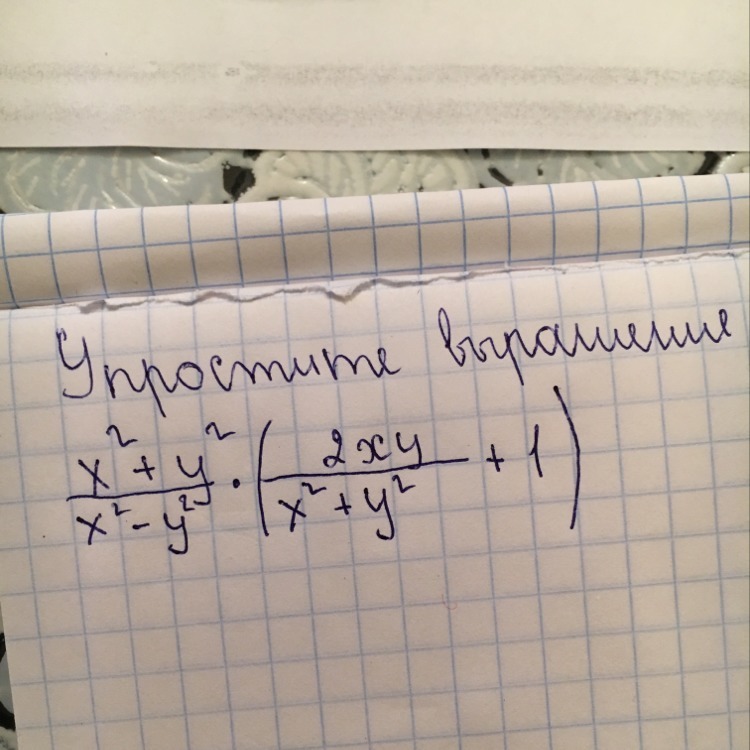 Упростите выражение
\frac{x^2+y^2}{x^2-y^2} \cdot \left( \frac{2xy}{x^2+y^2} + 1 \right)